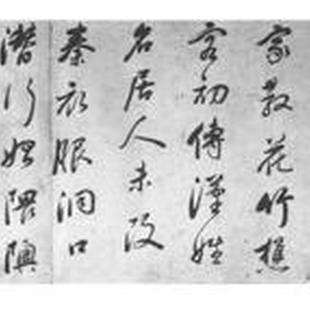 家散花竹樵
客初傳漢姓
名居人未改
秦衣服洞口
潛行始隈隩